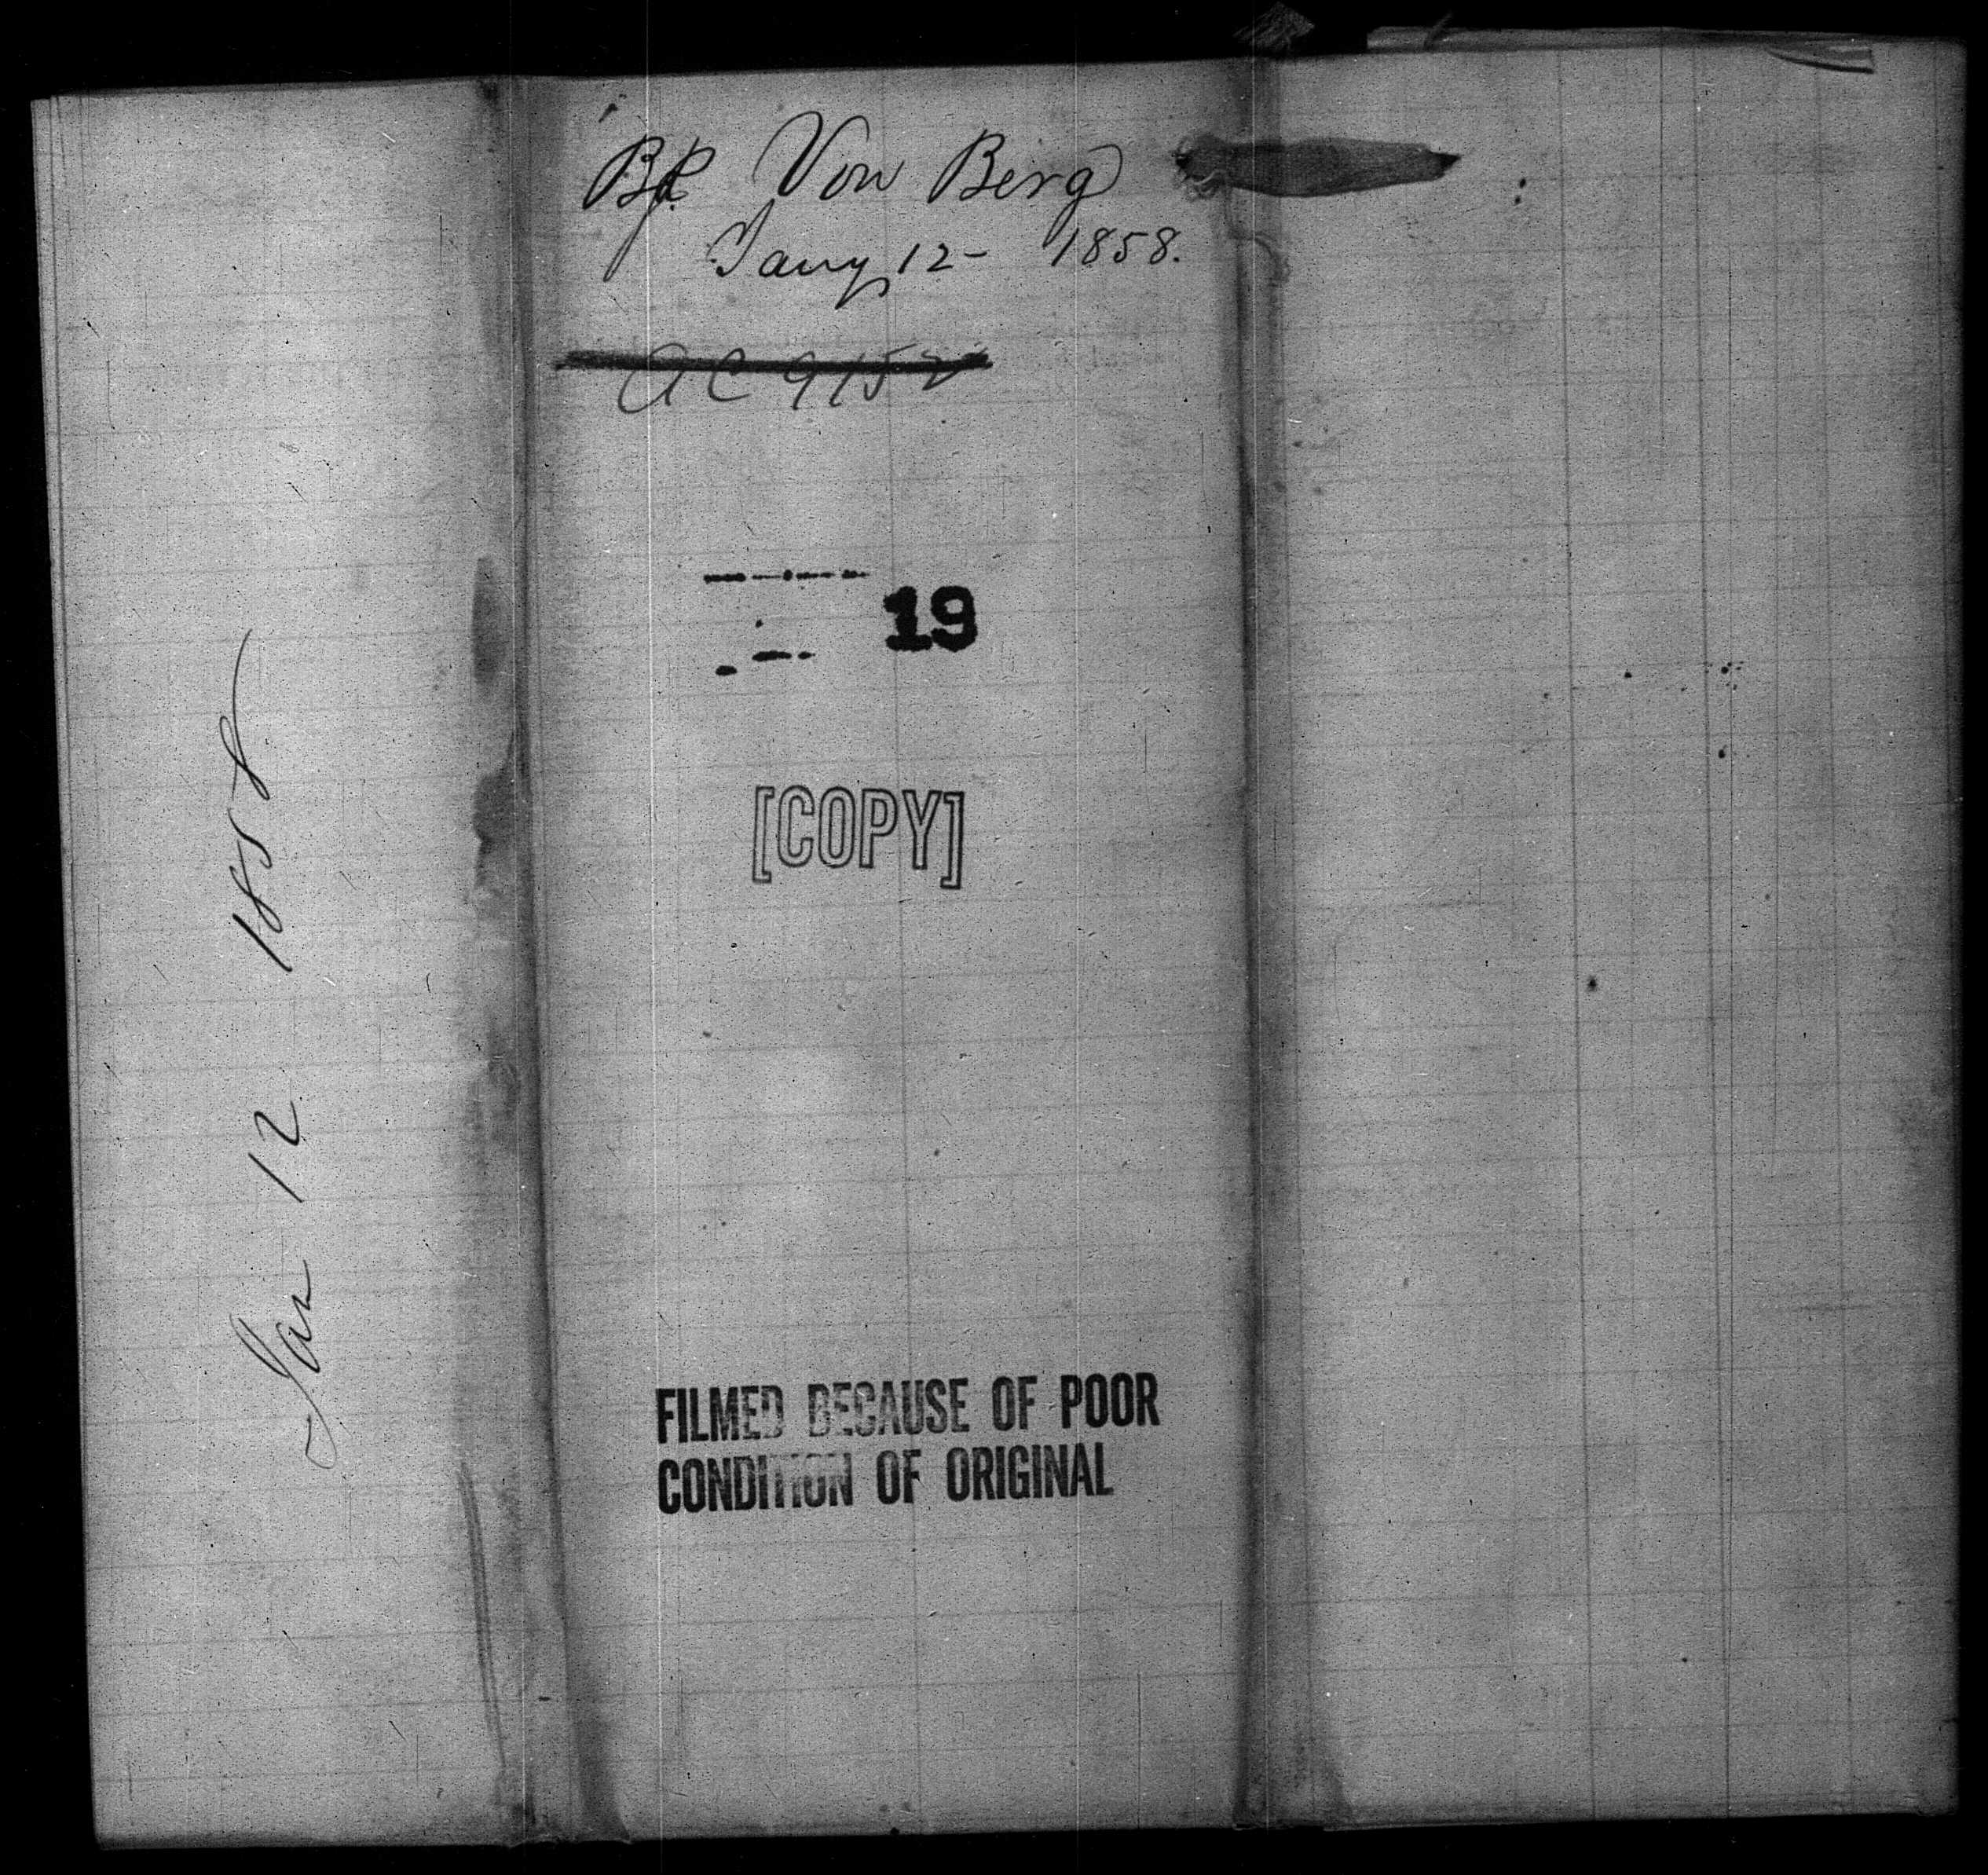 Von Berg
Jany 12- 1858.
AC 9152
19
[COPY]
FILMED BECAUSE OF POOR
CONDITION OF ORIGINAL
Jan 12 1858